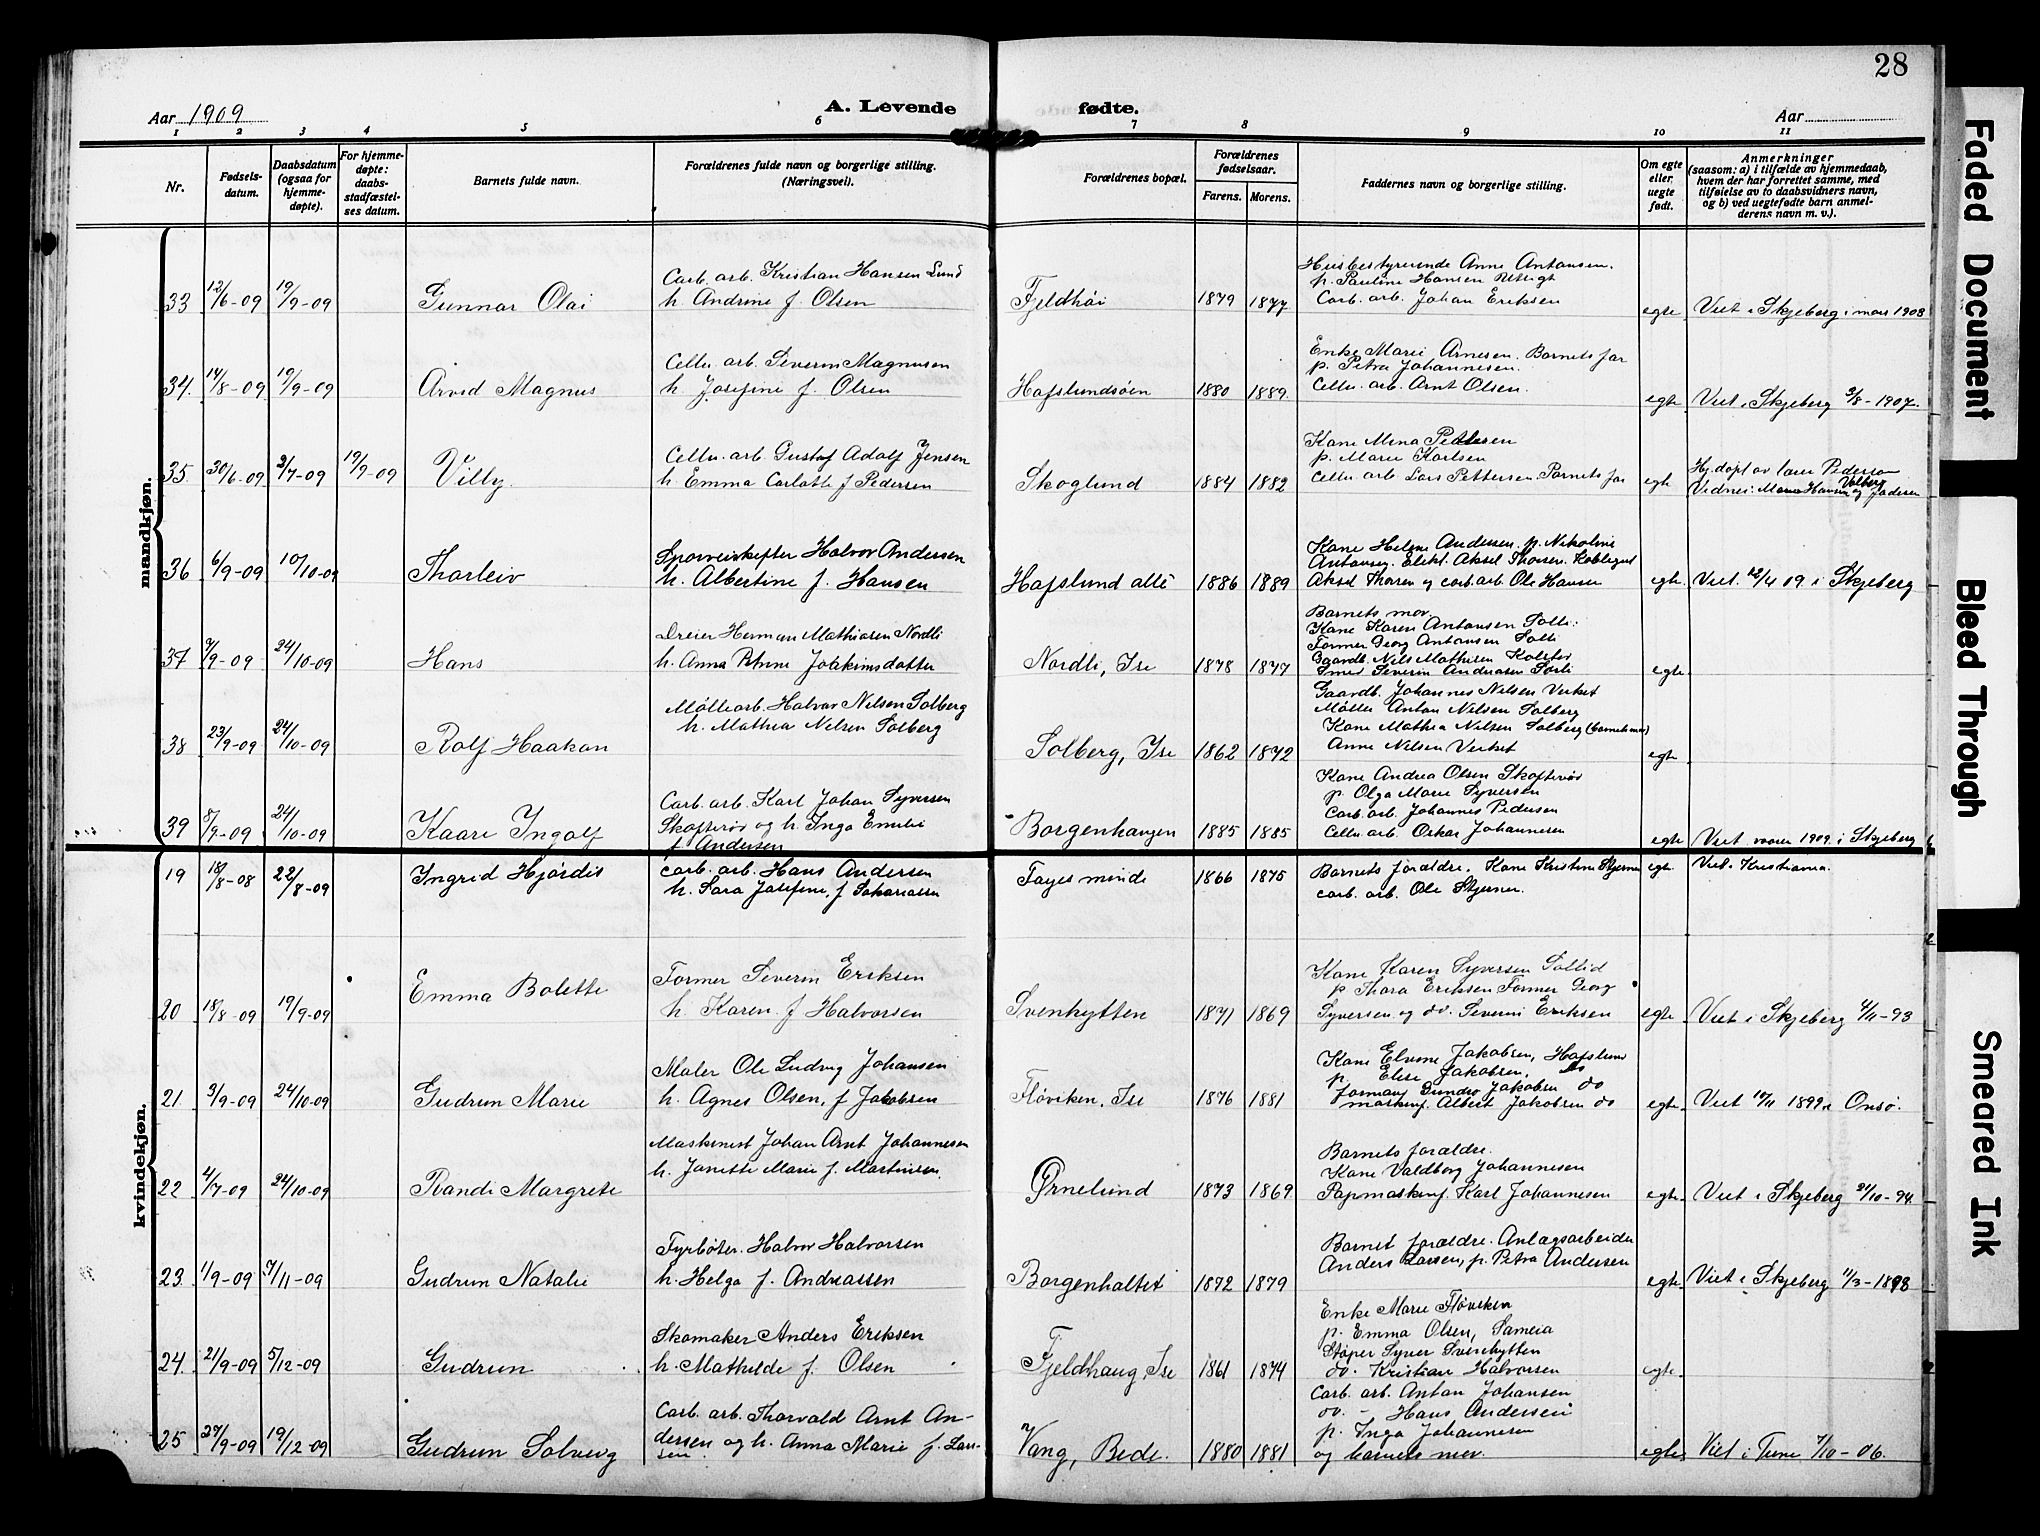 28
Aar 1909
A. Levende
fødte.
Aar
1 2 3 4 5 6 7 8 9 10 11
Nr.
Fødsels-
datum.
Daabsdatum
(ogsaa for
hjemme-
døpte).
For hjemme-
døpte:
daabs-
stadfæstel-
ses datum.
Barnets fulde navn.
Forældrenes fulde navn og borgerlige stilling.
(Næringsvei).
Forældrenes bopæl.
Forældrenes
fødselsaar.
Farens. Morens.
Faddernes navn og borgerlige stilling.
Om egte
eller
uegte
født.
Anmerkninger
(saasom: a) i tilfælde av hjemmedaab,
hvem der har forrettet samme, med
tilføielse av to daabsvidners navn,
og b) ved uegtefødte barn anmel-
derens navn m. v.).
mandkjøn.
33 12/6-09 19/9-09 Gunnar Olai
Carb. arb. Kristian Hansen Lund
h. Andrine f. Olsen
Fjeldhøi 1879 1877
Husbestyrerinde Anne Antonsen.
p. Pauline Hansen
Carb. arb. Johan Eriksen
egte Viet i Skjeberg i mars 1908
34. 14/8-09 19/9-09 Arvid Magnus
Cellu. arb. Severin Magnusen
h. Josefine f. Olsen
Hafslundsøen 1880 1889.
Enke Marie Arnesen. Barnets far
p. Petra Johannesen.
Cellu. arb. Arnt Olsen.
egte Viet i Skjeberg 3/8-1907.
35 30/6-09 2/7-09 19/9-09 Villy.
Cellu. arb Gustaf Adolf Jensen
h. Emma Carlotte f Pedersen
Skoglund 1884 1882
Kone Mina Pettersen
p. Marie Karlsen
Cellu. arb Lars Pettersen. Barnets far
egte Hj. døpt av lærer Pederson
Vidner: Hansen og Valborg
36 6/9-09 10/10-09 Thorleiv
Sporveiskefter Halvor Andersen
h. Albertine f. Hansen
Hafslund allé 1886 1889
Kone Helene Andersen, p. Nikoline
Antonsen. Elekt. Aksel Thoresen
Aksel Thoren og carb. arb. Ole Hansen
egte. Viet. 12/4 09. i Skjeberg
37 7/9-09 24/10-09 Hans
Dreier Herman Mathiasen Nordli
h. Anna Petrine Joakimsdatter
Nordli, Ise 1878 1877
Barnets mor.
Kone Karen Antonsen Solli.
Former Georg Antonsen Solli
Gaardb. Nils Mathisen Kolstad
Smed Severin Andreasen Sorli
egte.
38 23/9-09 24/10-09 Rolf Haakon
Møllearb. Halvor Nilsen Solberg
h. Mathea Nilsen Solberg
Solberg, Ise 1862 1872
Gaardb. Johannes Nilsen Verket
Møller Anton Nilsen Solberg
Kone Mathea Nilsen Solberg (barnets mor)
Anne Nilsen Verket
egte
39 8/9-09 24/10-09 Kaare Ingolf
Carb. arb. Karl Johan Syversen
Skofterød og h. Inga Emilie
f Andersen
Borgenhaugen 1885 1885
Kone Andrea Olsen Skofterød
p. Olga Marie Syversen
Carb. arb. Johannes Pedersen
Cellu. arb. Oskar Johannesen
egte Viet vaaren 1909 i Skjeberg
kvindekjøn.
19 18/8-08 22/8-09 Ingrid Hjørdis
carb. arb. Hans Andersen
h. Sara Josefine, f Sakariassen
Fayes minde 1866 1875
Barnets forældre. Kone Kristine Stjerner
carb. arb. Ole Stjerner.
egte. Viet i Kristiania.
20 18/8-09 19/9-09 Emma Bolette
Former Severin Eriksen
h. Karen. f Halvorsen
Svenhytten 1871 1869
Kone Karen Syversen Sollid
p. Thora Eriksen Former Georg
Syversen og do. Severin Eriksen
egte Viet i Skjeberg 4/11-93
21 3/9-09 24/10-09 Gudrun Marie
Maler Ole Ludvig Johansen
h. Agnes Olsen, f Jakobsen
Fløviken, Ise 1876 1881
Kone Elvine Jakobsen, Hafslund
p. Elise Jakobsen, do
formand Gunder Jakobsen do
maskinf. Albert Jakobsen do
egte. Viet 10/11 1899 i Onsø.
22 4/7-09 24/10-09 Randi Margrete
Maskinist Johan Arnt Johannesen
h. Janette Marie f. Martinsen.
Ørnelund 1873 1869
Barnets forældre.
Kone Valdborg Johannesen
Papmaskinf. Karl Johannesen
egte. Viet i Skjeberg 21/10-94.
23 1/9-09 7/11-09 Gudrun Natalie
Fyrbøter. Halvor Halvorsen
h. Helga f. Andreassen
Borgenholtet 1872 1879
Barnet forældre. Anlægsarbeider
Anders Larsen, p. Petra Andersen
egte. Viet i Skjeberg 11/3-1898
24. 21/9-09 5/12-09 Gudrun
Skomaker Anders Eriksen
h. Mathilde f. Olsen
Fjeldhaug, Ise 1861 1874
Enke Marie Fløviken
p. Emma Olsen, Sameia
Støper Syver Svenhytten
do. Kristian Halvorsen
egte.
25 27/9-09 19/12-09 Gudrun Solveig
Carb. arb. Thorvald Arnt An-
dersen og h. Anna Marie f. Lar-
sen.
Vang, Bede. 1880 1881
Carb. arb. Anton Johansen
do. - Hans Andersen
p. Inga Johannesen
og barnets mor.
egte. Viet i Tune 7/10-06.
Faded Document
Bleed Through
Smeared Ink